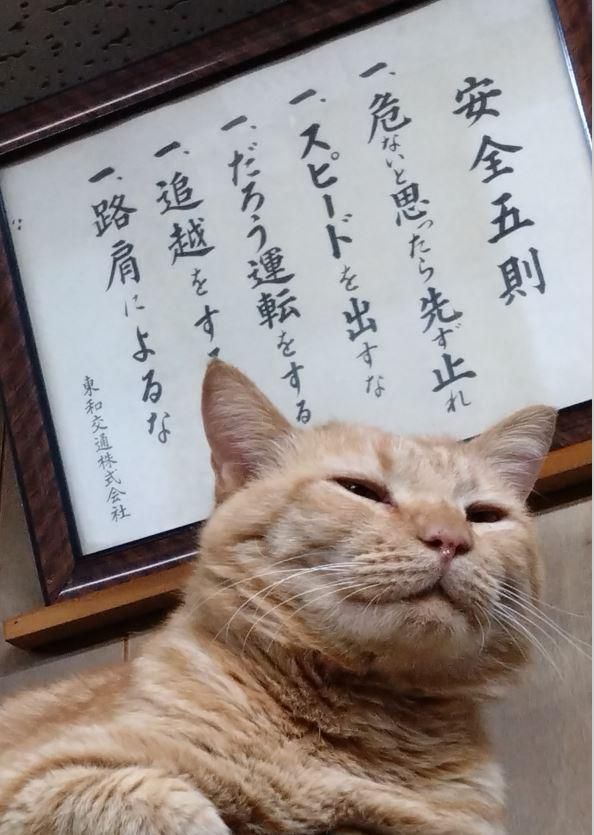 安全五則
一、危ないと思ったら先ず止れ
一、スピードを出すな
一、だろう運転をする
一、追越をする
一、路肩によるな
東和交通株式会社